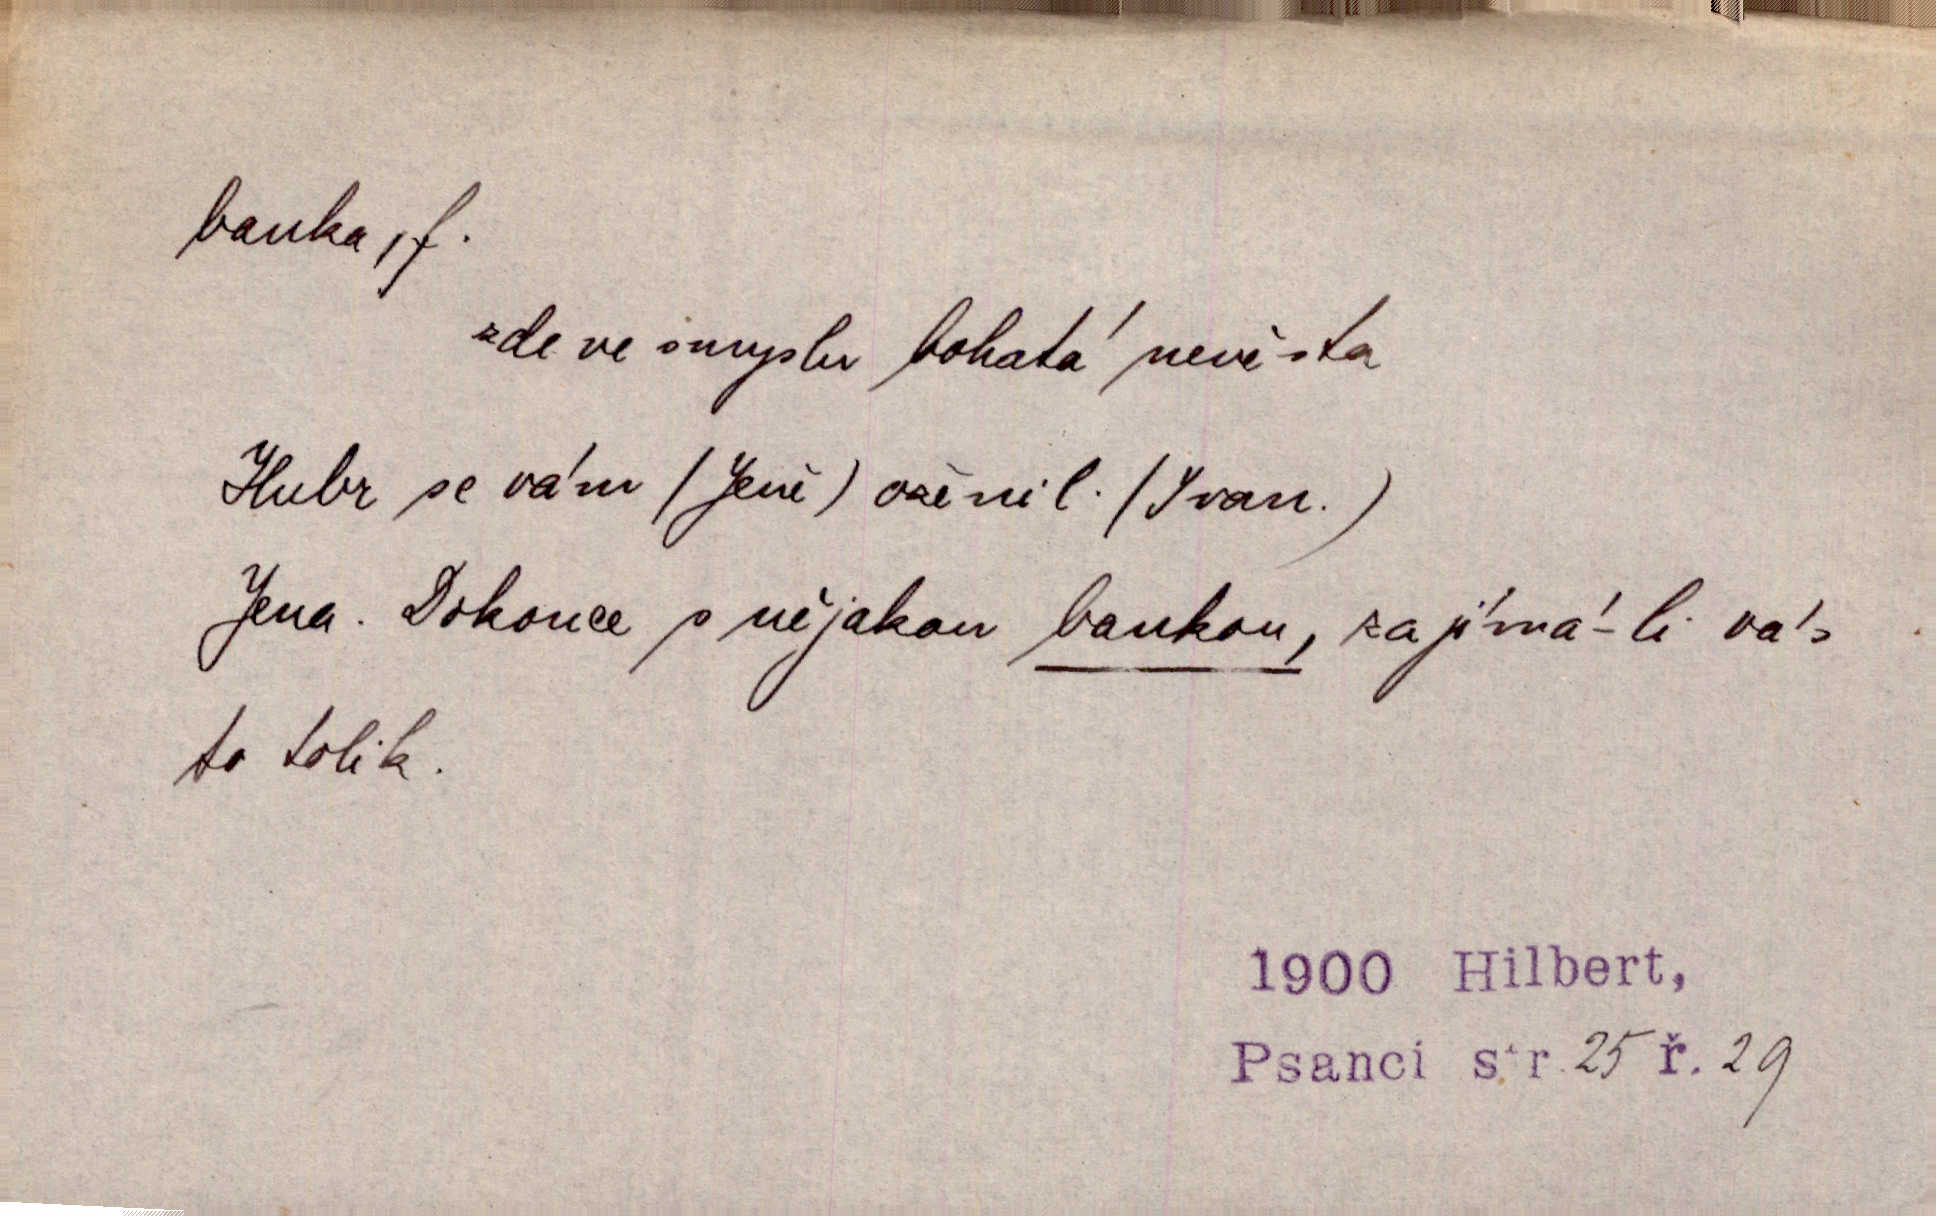 banka, f.
zde ve smyslu bohatá nevěsta
Hubr se vám (Jeně) oženil. (Ivan.)
Jena. Dokonce s nějakou bankou, zajímá-li vás
to tolik.
1900 Hilbert,
Psanci str. 25 ř. 29